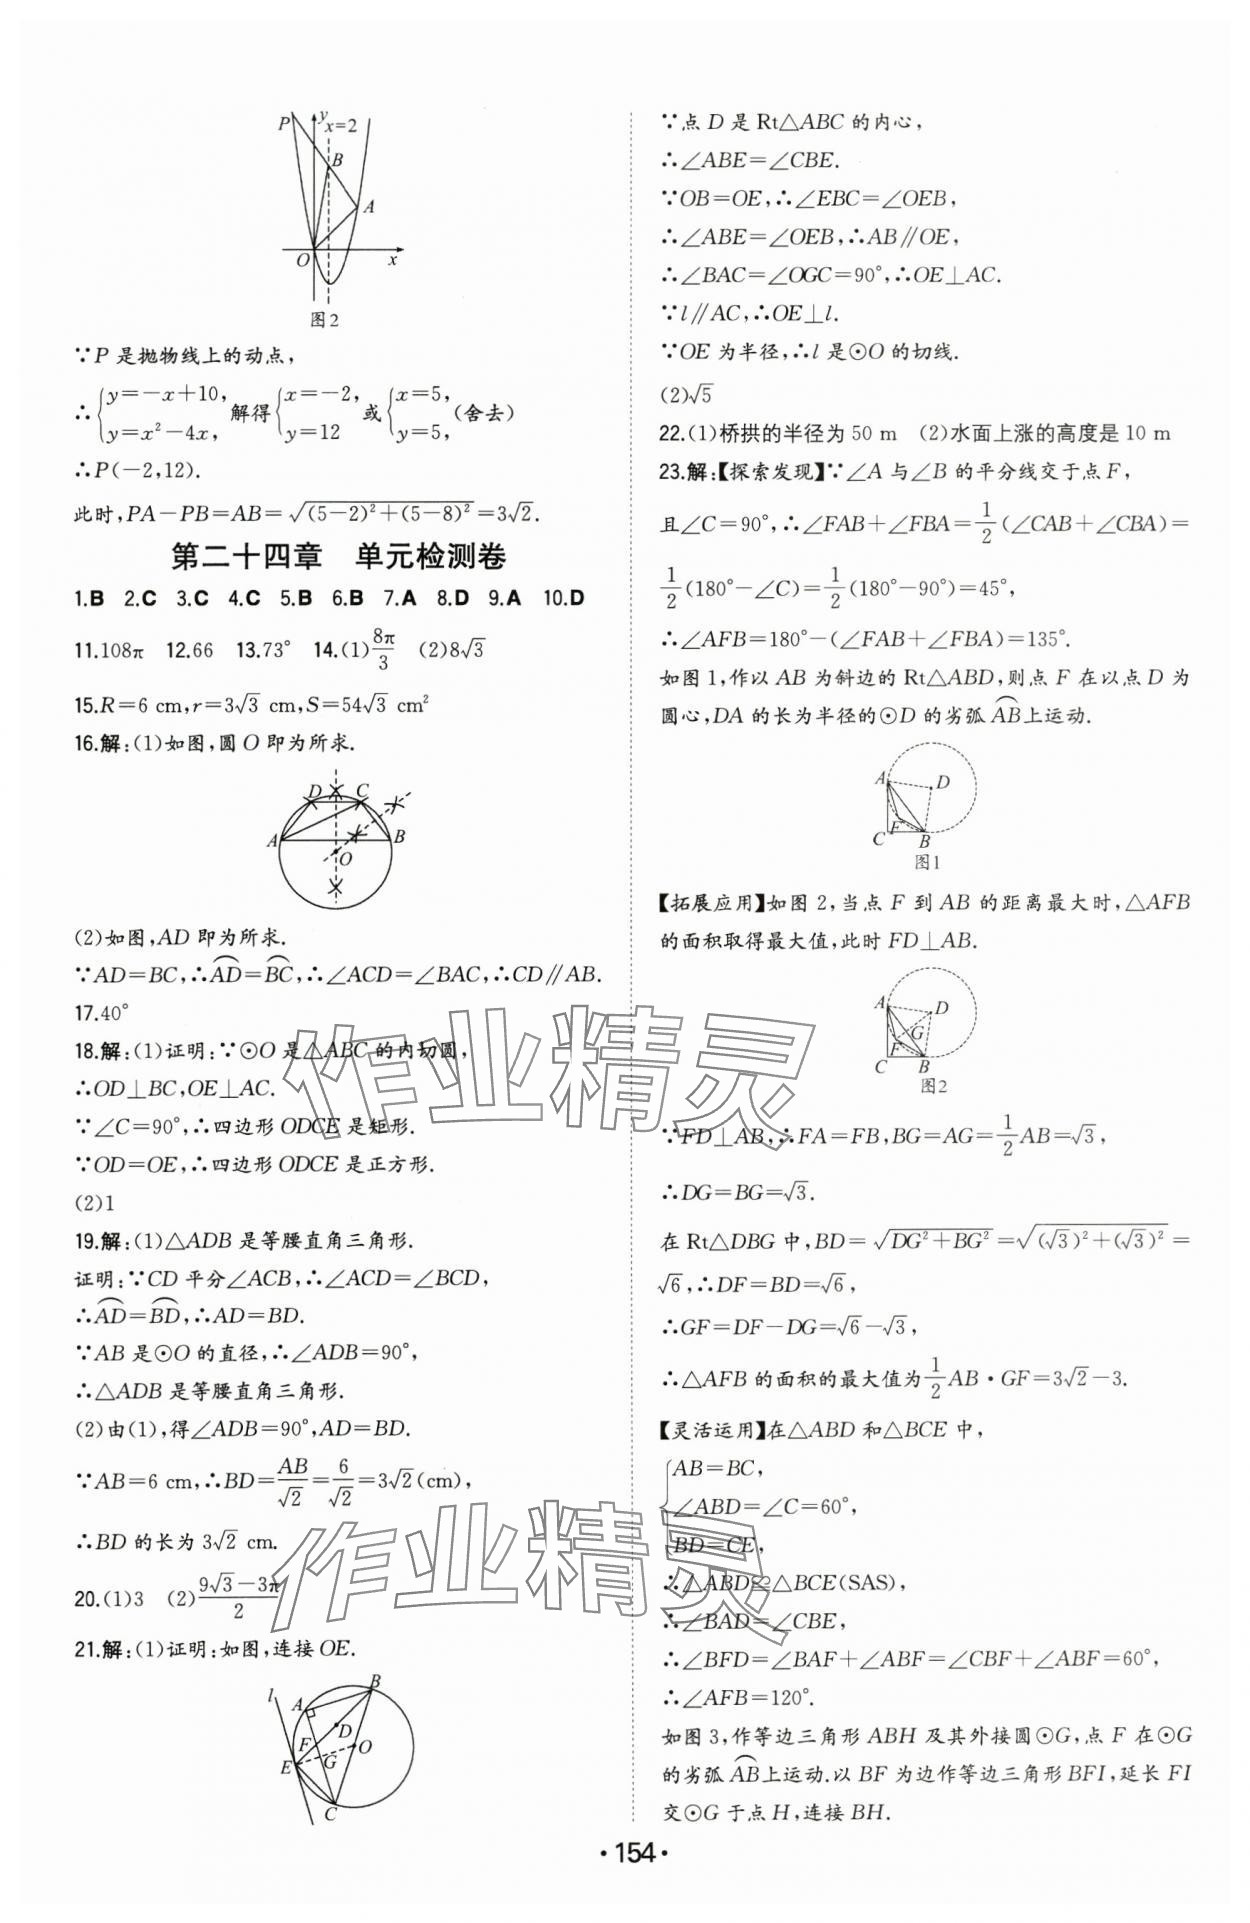 P
y
x=2
B
A
O
x
图2
∵P 是抛物线上的动点,
∴{y=-x+10, y=x²-4x, 解得{x=-2, y=12 或{x=5, y=5, (舍去)
∴P(-2,12).
此时,PA-PB=AB=√((5-2)²+(5-8)²)=3√2.
第二十四章 单元检测卷
1.B 2.C 3.C 4.C 5.B 6.B 7.A 8.D 9.A 10.D
11.108π 12.66 13.73° 14.(1)8π/3 (2)8√3
15.R=6 cm,r=3√3 cm,S=54√3 cm²
16.解:(1)如图,圆 O 即为所求.
D
C
A
B
O
(2)如图,AD 即为所求.
∵AD=BC,∴⌒AD=⌒BC,∴∠ACD=∠BAC,∴CD∥AB.
17.40°
18.解:(1)证明:∵⊙O 是△ABC 的内切圆,
∴OD⊥BC,OE⊥AC.
∵∠C=90°,∴四边形 ODCE 是矩形.
∵OD=OE,∴四边形 ODCE 是正方形.
(2)1
19.解:(1)△ADB 是等腰直角三角形.
证明:∵CD 平分∠ACB,∴∠ACD=∠BCD,
∴⌒AD=⌒BD,∴AD=BD.
∵AB 是⊙O 的直径,∴∠ADB=90°,
∴△ADB 是等腰直角三角形.
(2)由(1),得∠ADB=90°,AD=BD.
∵AB=6 cm,∴BD=AB/√2=6/√2=3√2(cm),
∴BD 的长为 3√2 cm.
20.(1)3 (2)(9√3-3π)/2
21.解:(1)证明:如图,连接 OE.
l
A
B
D
F
G
O
E
C
∵点 D 是 Rt△ABC 的内心,
∴∠ABE=∠CBE.
∵OB=OE,∴∠EBC=∠OEB,
∴∠ABE=∠OEB,∴AB∥OE,
∴∠BAC=∠OGC=90°,∴OE⊥AC.
∵l∥AC,∴OE⊥l.
∵OE 为半径,∴l 是⊙O 的切线.
(2)√5
22.(1)桥拱的半径为 50 m (2)水面上涨的高度是 10 m
23.解:【探索发现】∵∠A 与∠B 的平分线交于点 F,
且∠C=90°,∴∠FAB+∠FBA=1/2(∠CAB+∠CBA)=
1/2(180°-∠C)=1/2(180°-90°)=45°,
∴∠AFB=180°-(∠FAB+∠FBA)=135°.
如图 1,作以 AB 为斜边的 Rt△ABD,则点 F 在以点 D 为
圆心,DA 的长为半径的⊙D 的劣弧⌒AB上运动.
A
D
F
C
B
图1
【拓展应用】如图 2,当点 F 到 AB 的距离最大时,△AFB
的面积取得最大值,此时 FD⊥AB.
A
D
G
F
C
B
图2
∵FD⊥AB,∴FA=FB,BG=AG=1/2AB=√3,
∴DG=BG=√3.
在 Rt△DBG 中,BD=√(DG²+BG²)=√((√3)²+(√3)²)=
√6,∴DF=BD=√6,
∴GF=DF-DG=√6-√3,
∴△AFB 的面积的最大值为1/2AB·GF=3√2-3.
【灵活运用】在△ABD 和△BCE 中,
{AB=BC,
∠ABD=∠C=60°,
BD=CE,
∴△ABD≌△BCE(SAS),
∴∠BAD=∠CBE,
∴∠BFD=∠BAF+∠ABF=∠CBF+∠ABF=60°,
∴∠AFB=120°.
如图 3,作等边三角形 ABH 及其外接圆⊙G,点 F 在⊙G
的劣弧⌒AB上运动.以 BF 为边作等边三角形 BFI,延长 FI
交⊙G 于点 H,连接 BH.
·154·
作业精灵
作业精灵